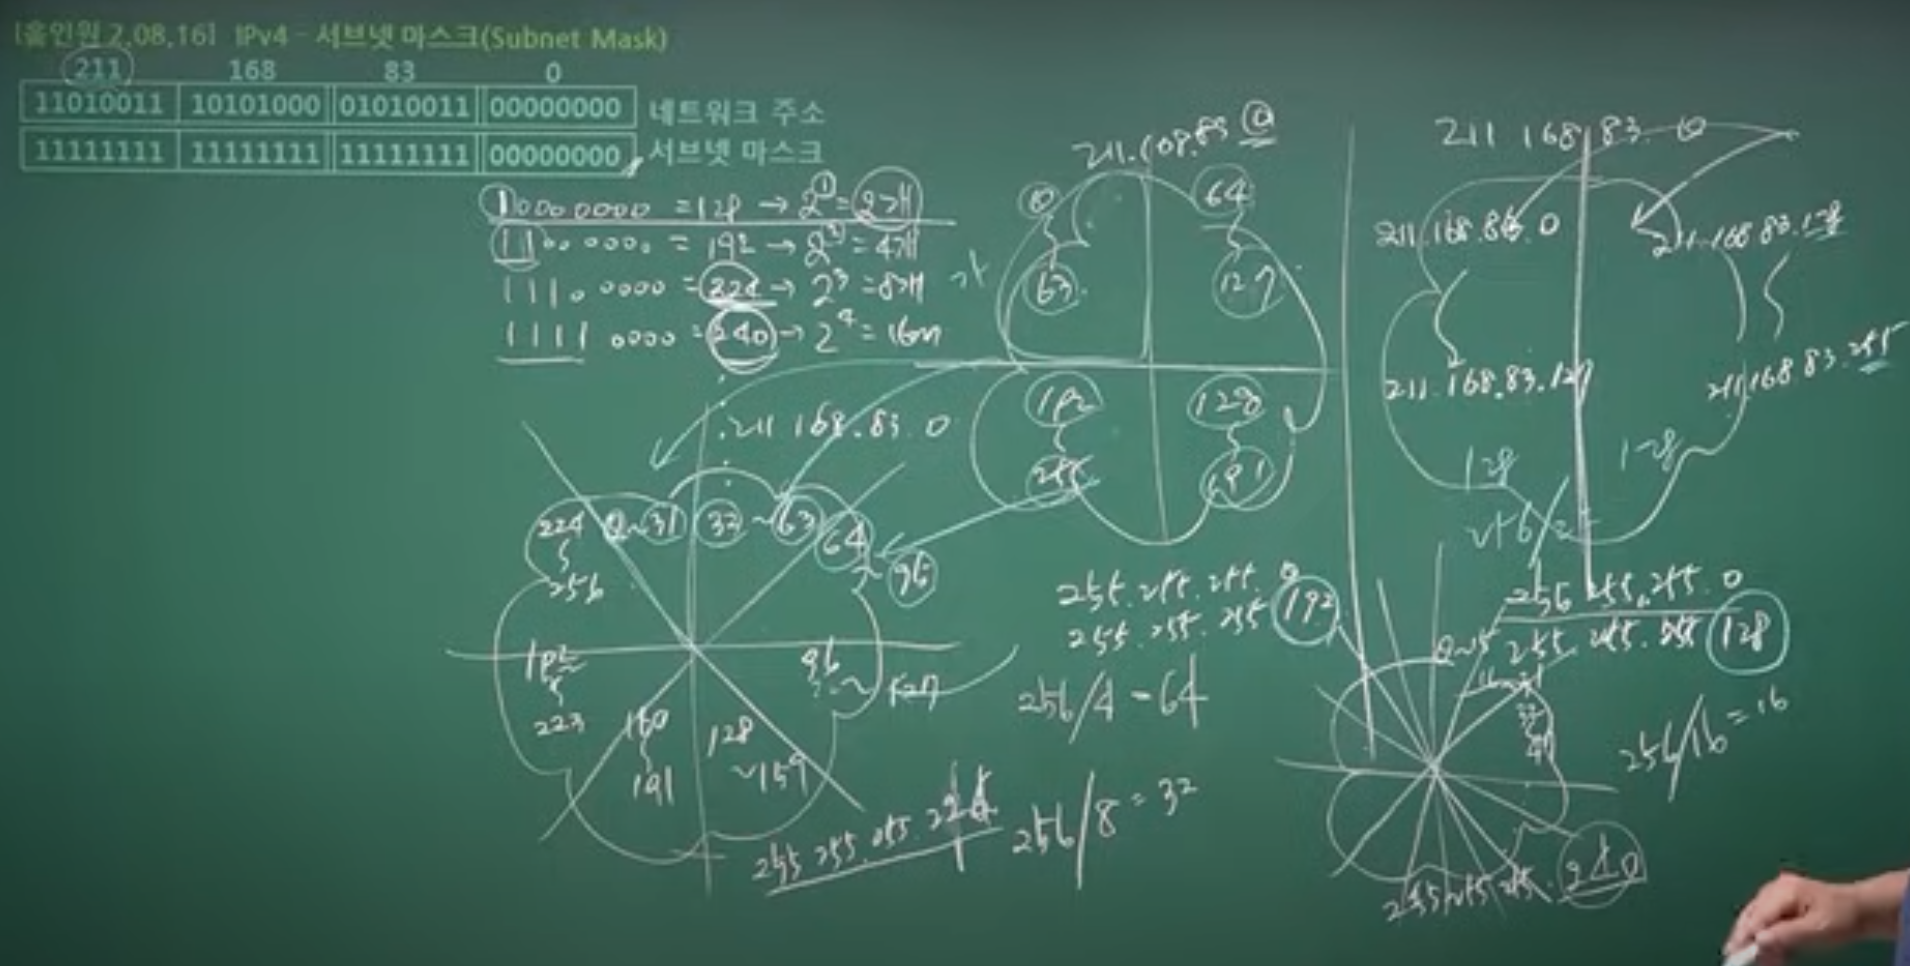 [흡인원 2,08,16] IPv4 - 서브넷 마스크(Subnet Mask)
211 168 83 0
11010011 10101000 01010011 00000000 네트워크 주소
11111111 11111111 11111111 00000000 서브넷 마스크
10000000 = 128 → 2¹ = 2개
11000000 = 192 → 2² = 4개
11100000 = 224 → 2³ = 8개
11110000 = 240 → 2⁴ = 16개
211.168.83.0
0
63
64
127
192
255
128
191
255.255.255.0
255.255.255.192
256/4 = 64
211.168.83.0
0~31
32~63
64
~
95
96
~127
128
~159
160
191
192
223
224
256
255.255.255.224
256/8 = 32
211 168 83 0
211.168.83.0
211.168.83.127
211.168.83.128
211.168.83.255
128
128
256/2
256 255.255.0
255.255.255.128
0~15
256/16 = 16
255.255.255.240